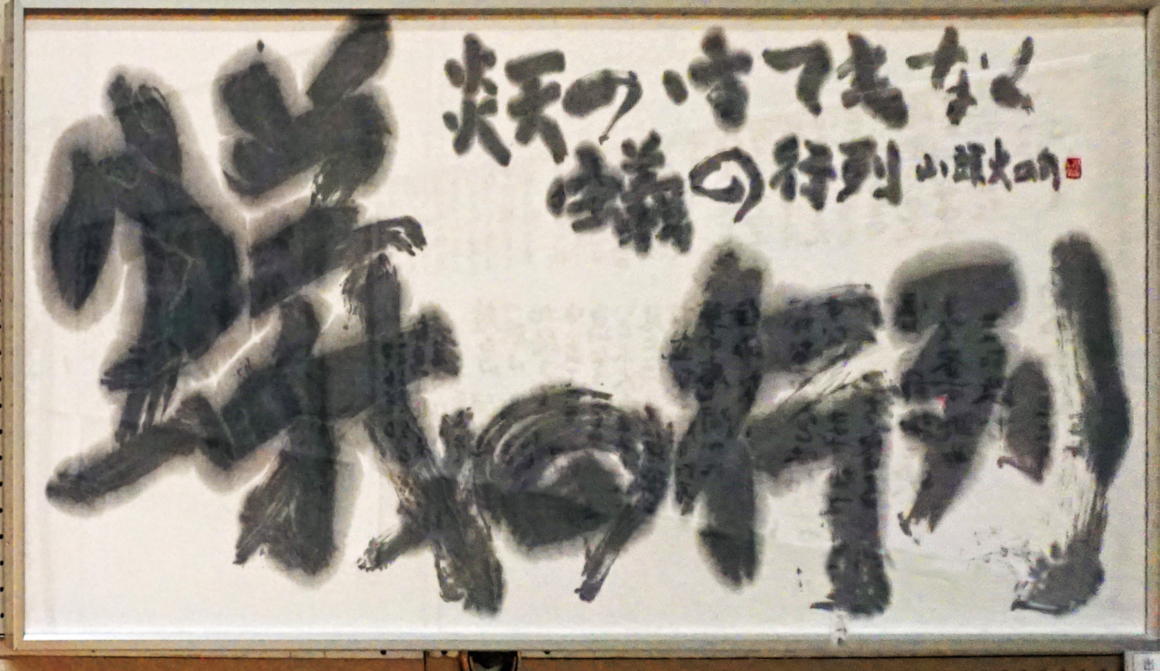 炎天のはてもなく
蟻の行列 山頭火
蟻の行列